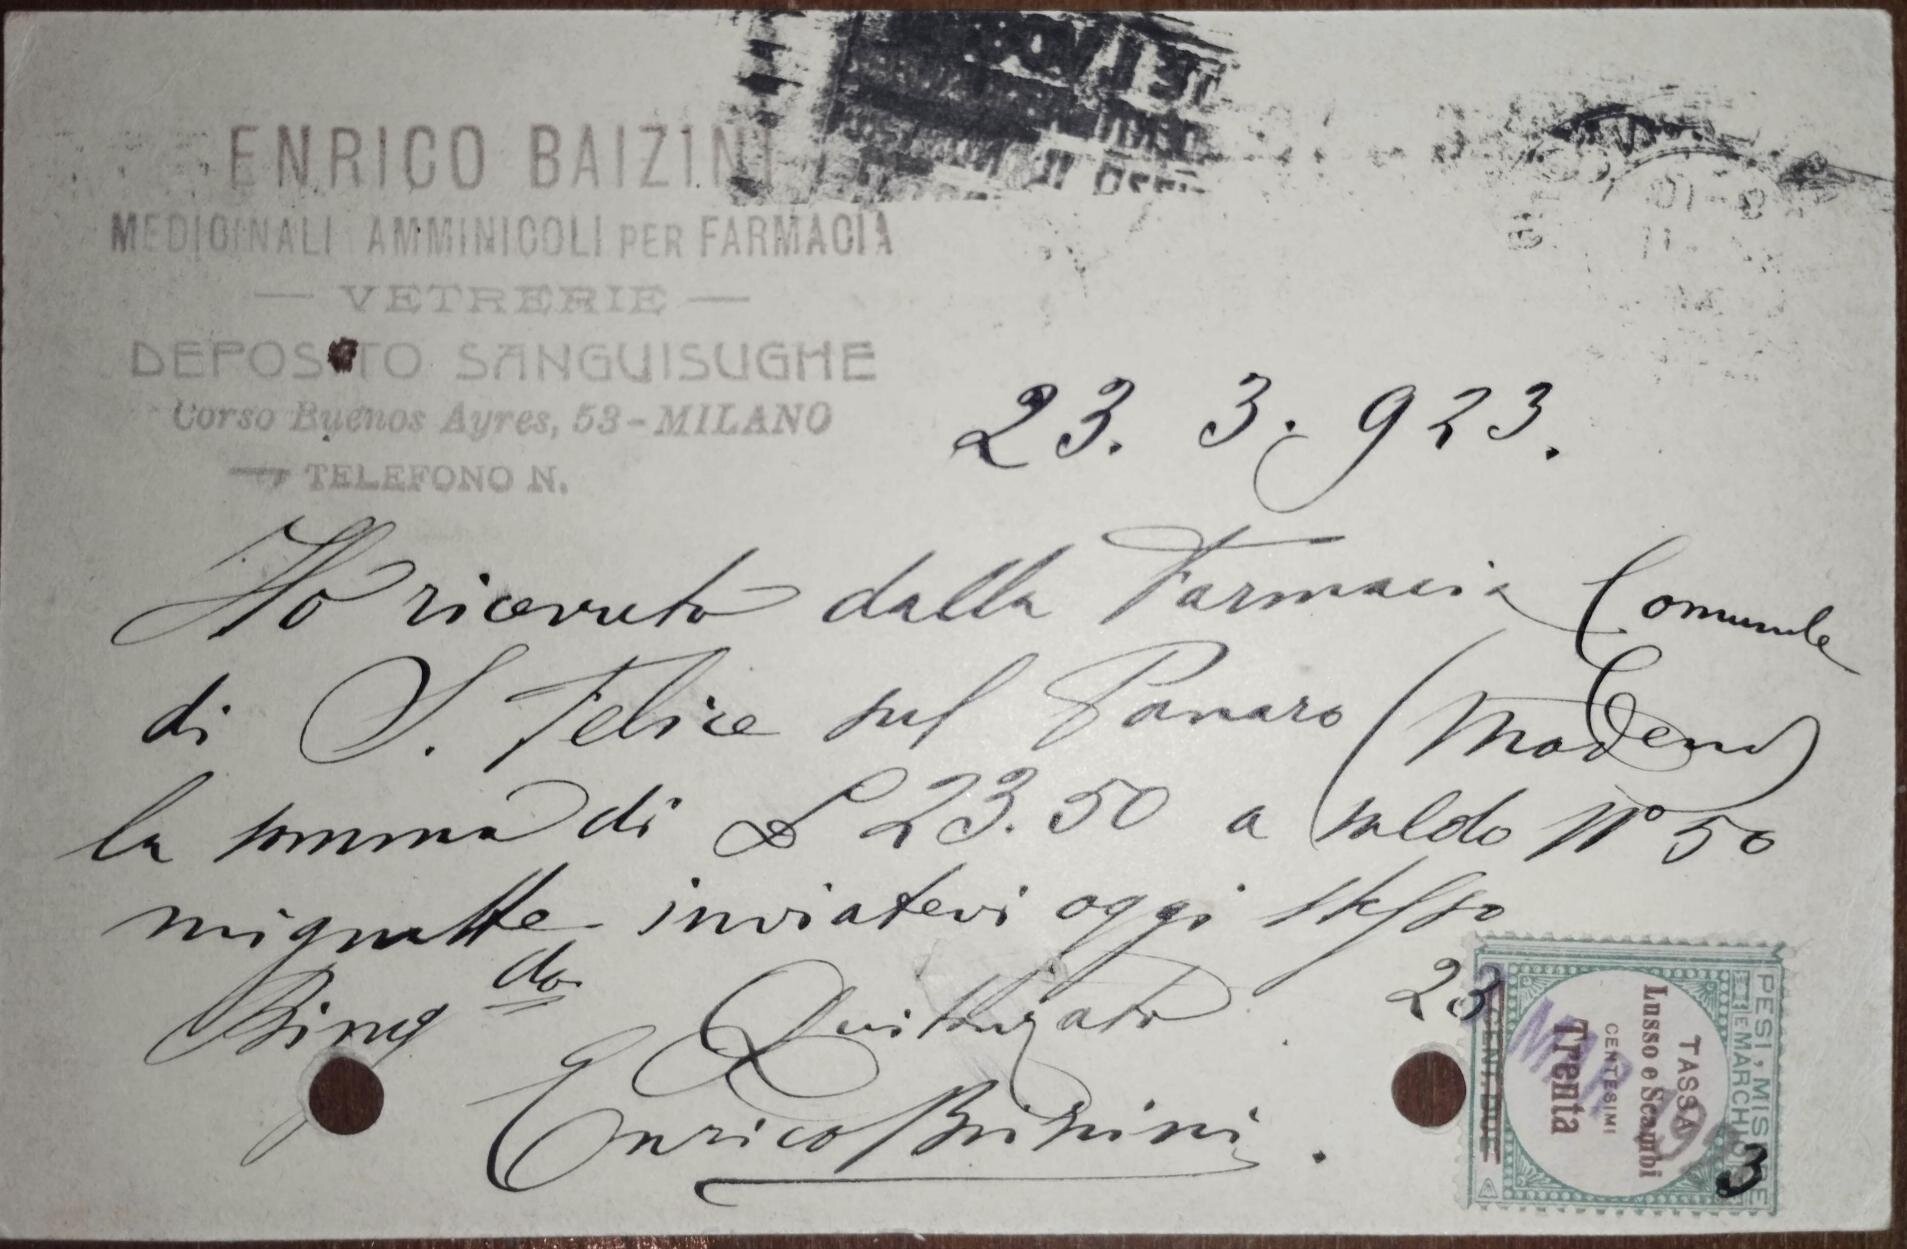 ENRICO BAIZINI
MEDICINALI AMMINICOLI PER FARMACIA
— VETRERIE —
DEPOSITO SANGUISUGHE
Corso Buenos Ayres, 53 - MILANO
TELEFONO N.
23. 3. 923.
Ho ricevuto dalla Farmacia Comunale
di S. Felice sul Panaro (Modena)
la somma di £ 23.50 a saldo N° 50
mignatte inviatevi oggi stesso
Ring do Quittanzato
Enrico Baizini.
23
3
PESI, MISURE
E MARCHIO
TASSA
Lusso e Scambi
CENTESIMI
Trenta
CENT. DUE
MAR